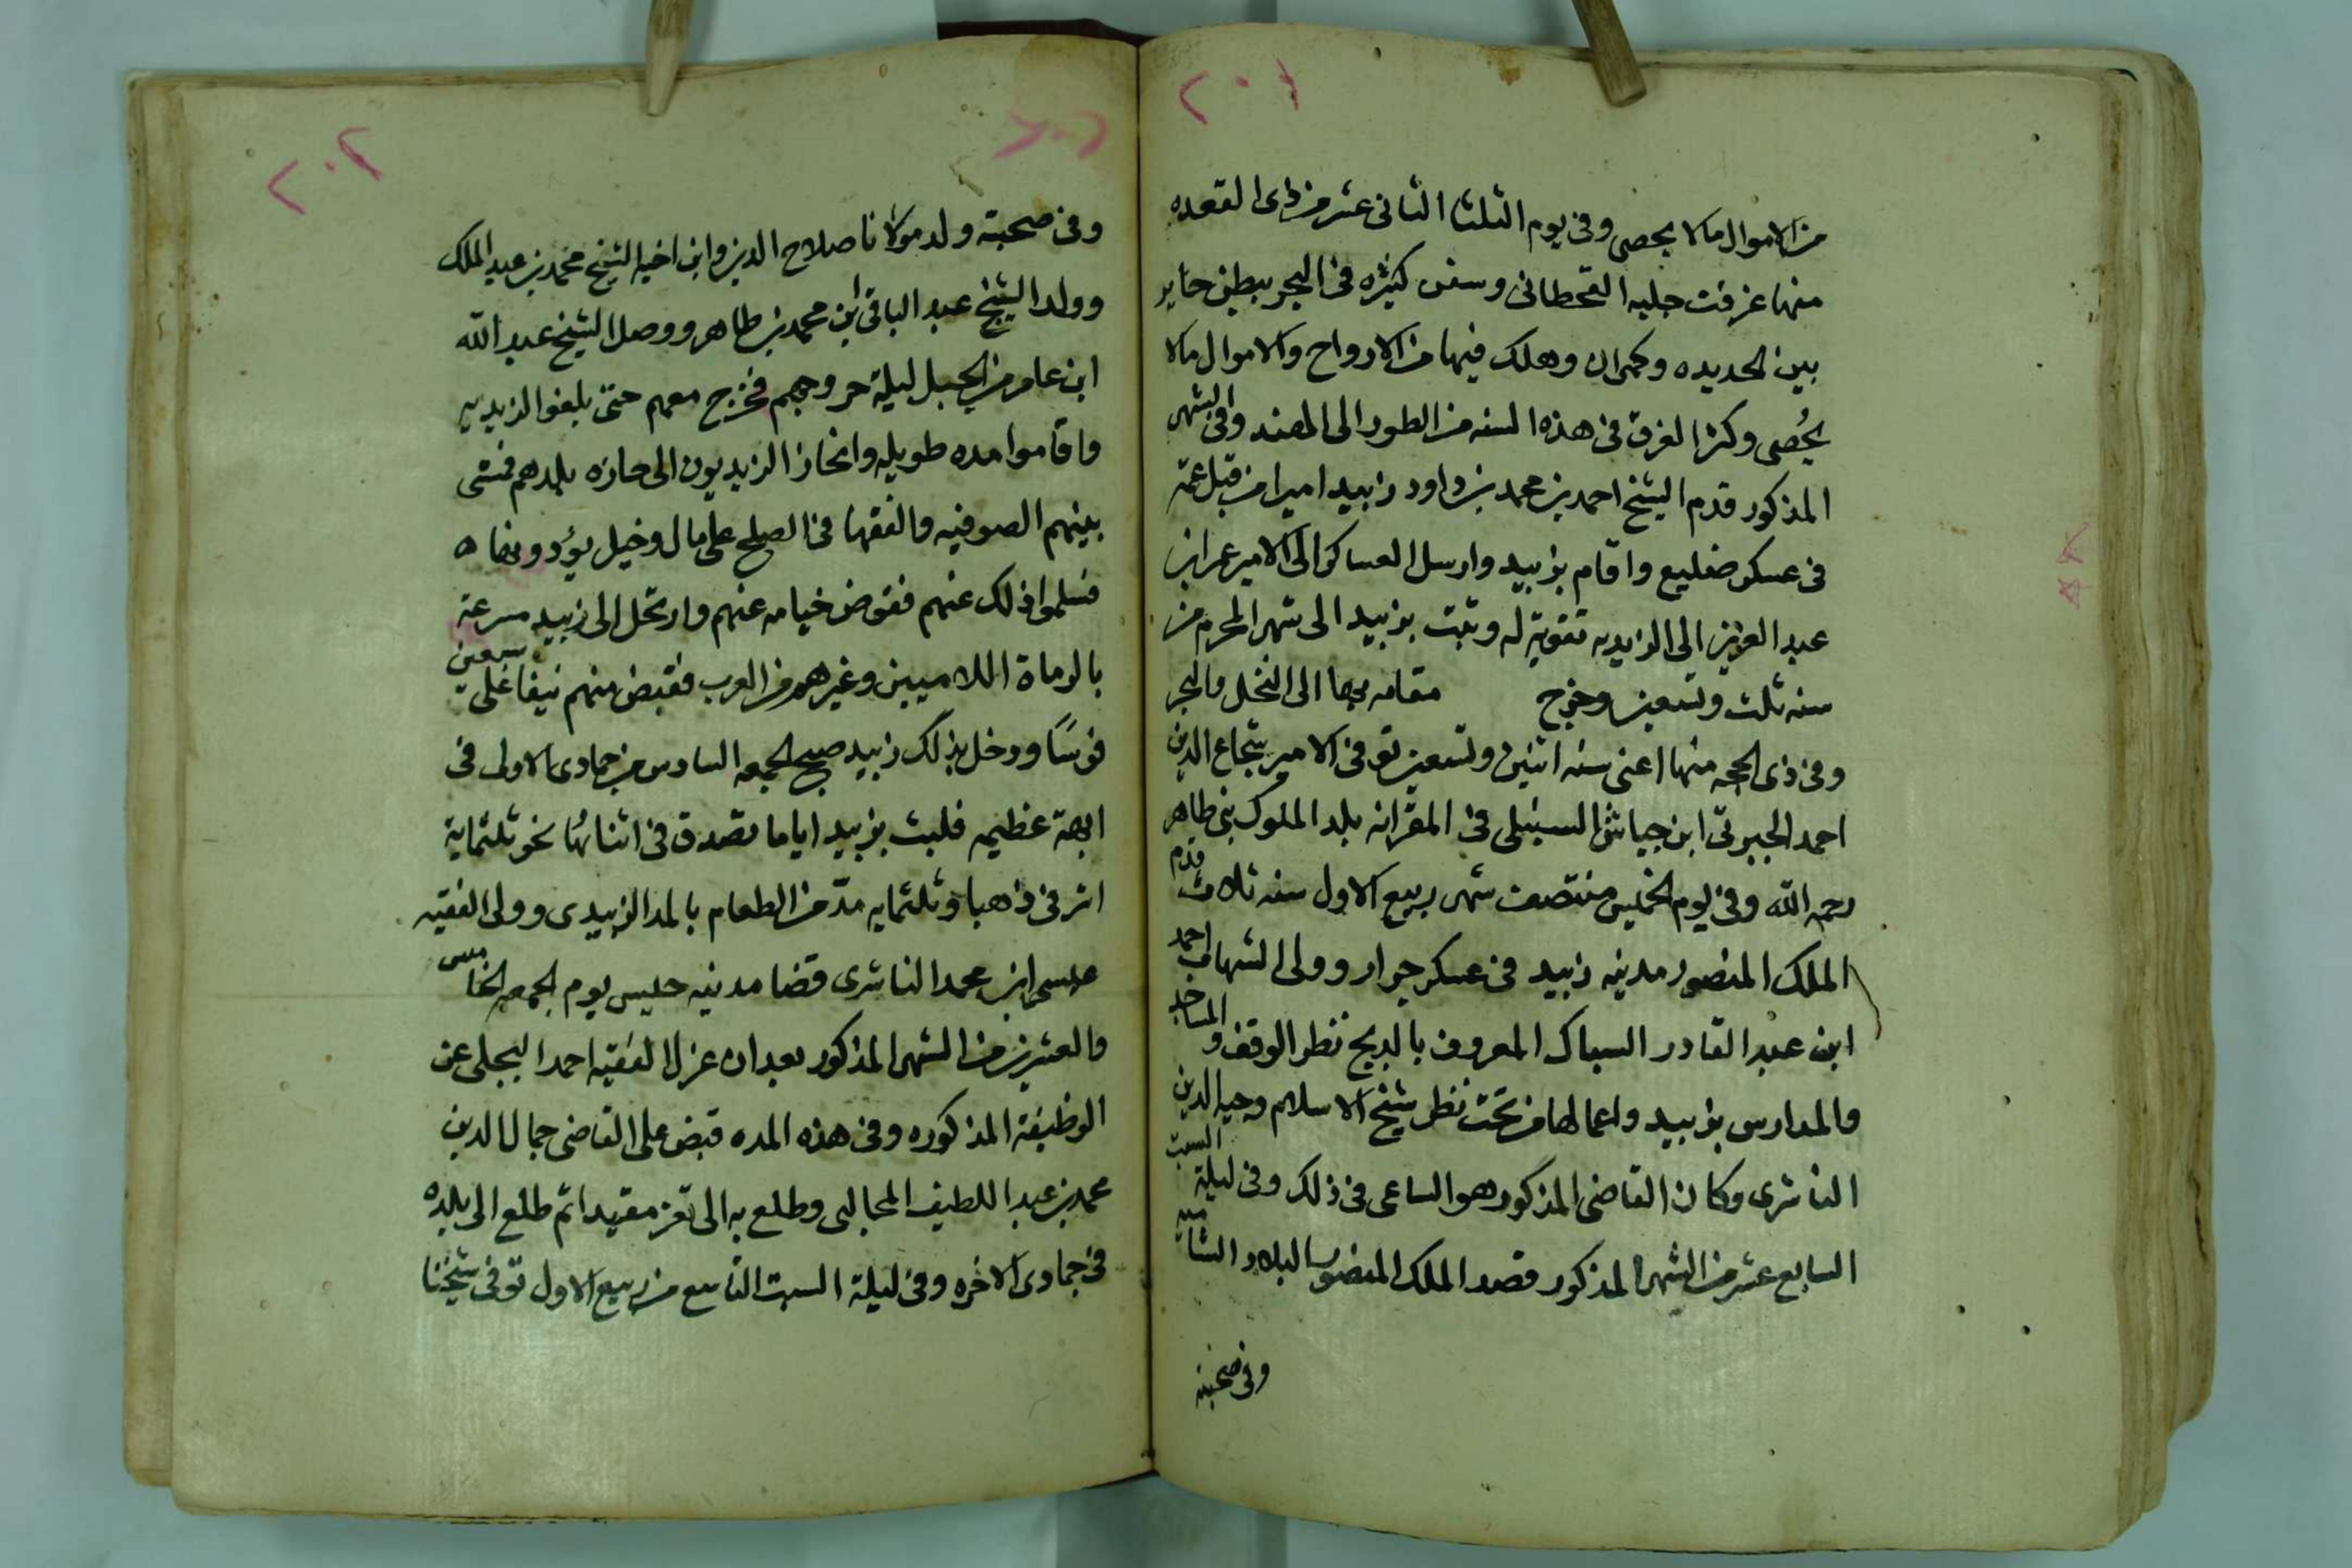 ٢٠١
من الاموال مالا يحصى وفى يوم الثلثا الثانى عشر من ذى القعده
منها غرقت جلبه القحطانى وسفن كثيره فى البحر ببطن جابر
بين الحديده وكمران وهلك فيها من الارواح والاموال مالا
يُحصى وكثر الغرق فى هذه السنه من الطور الى الهند وفى الشهر
المذكور قدم الشيخ احمد بن محمد بن داود زبيد اميرا من قبل عمه
فى عسكر ضليع واقام بزبيد وارسل العساكر الى الامير عمر ابن
عبد العزيز الى الزيديه تقوية له وثبت بزبيد الى شهر المحرم من
سنه ثلث وتسعين وخرج مقامه بها الى النخل والبحر
وفى ذى الحجه منها اعنى سنه اثنين وتسعين توفى الامير شجاع الدين
احمد الجبرتى ابن جياش السنبلى فى المقرانه بلد الملوك بنى طاهر
رحمه الله وفى يوم الخميس منتصف شهر ربيع الاول سنه ثلاث قدم
الملك المنصور مدينه زبيد فى عسكر جرار وولى الشهاب احمد
ابن عبد القادر السباك المعروف بالديح نظر الوقف والمساجد
والمدارس بزبيد واعمالها من تحت نظر شيخ الاسلام وجيه الدين
الناشرى وكان القاضى المذكور هو الساعى فى ذلك وفى ليلة السبت
السابع عشر من الشهر المذكور قصد الملك المنصور البلاد الشاميه
وفى صحبته
٢٠٢
وفى صحبته ولد مولانا صلاح الدين وابن اخيه الشيخ محمد بن عبد الملك
وولد الشيخ عبد الباقى ابن محمد بن طاهر ووصل الشيخ عبد الله
ابن عامر من الجبل ليلة خروجهم فخرج معهم حتى بلغوا الزيديه
واقاموا مده طويله وانحاز الزيديون الى حازه بلدهم فمشى
بينهم الصوفيه والفقها فى الصلح على مال وخيل يؤدونها ه
فسلموا ذلك عنهم فقوض خيامه عنهم وارتحل الى زبيد مسرعة
بالرماة اللاميين وغيرهم من العرب فقبض منهم نيفا على سبعين
فرسًا ودخل بذلك زبيد صبح الجمعه السادس من جمادى الاولى فى
ابهة عظيمه فلبث بزبيد اياما تصدق فى اثنائها نحو ثلثماية
اشرفى ذاهبا وثلثمايه مدّ من الطعام بالمد الزبيدى وولى الفقيه
عيسى ابن محمد الناشرى قضا مدينه حيس يوم الجمعه الخامس
والعشرين من الشهر المذكور بعد ان عزل الفقيه احمد البجلى عن
الوظيفة المذكوره وفى هذه المده قبض على القاضى جمال الدين
محمد بن عبد اللطيف المحالبى وطلع به الى تعز مقيدا ثم طلع الى بلده
فى جمادى الاخره وفى ليلة السبت التاسع من ربيع الاول توفى شيخنا